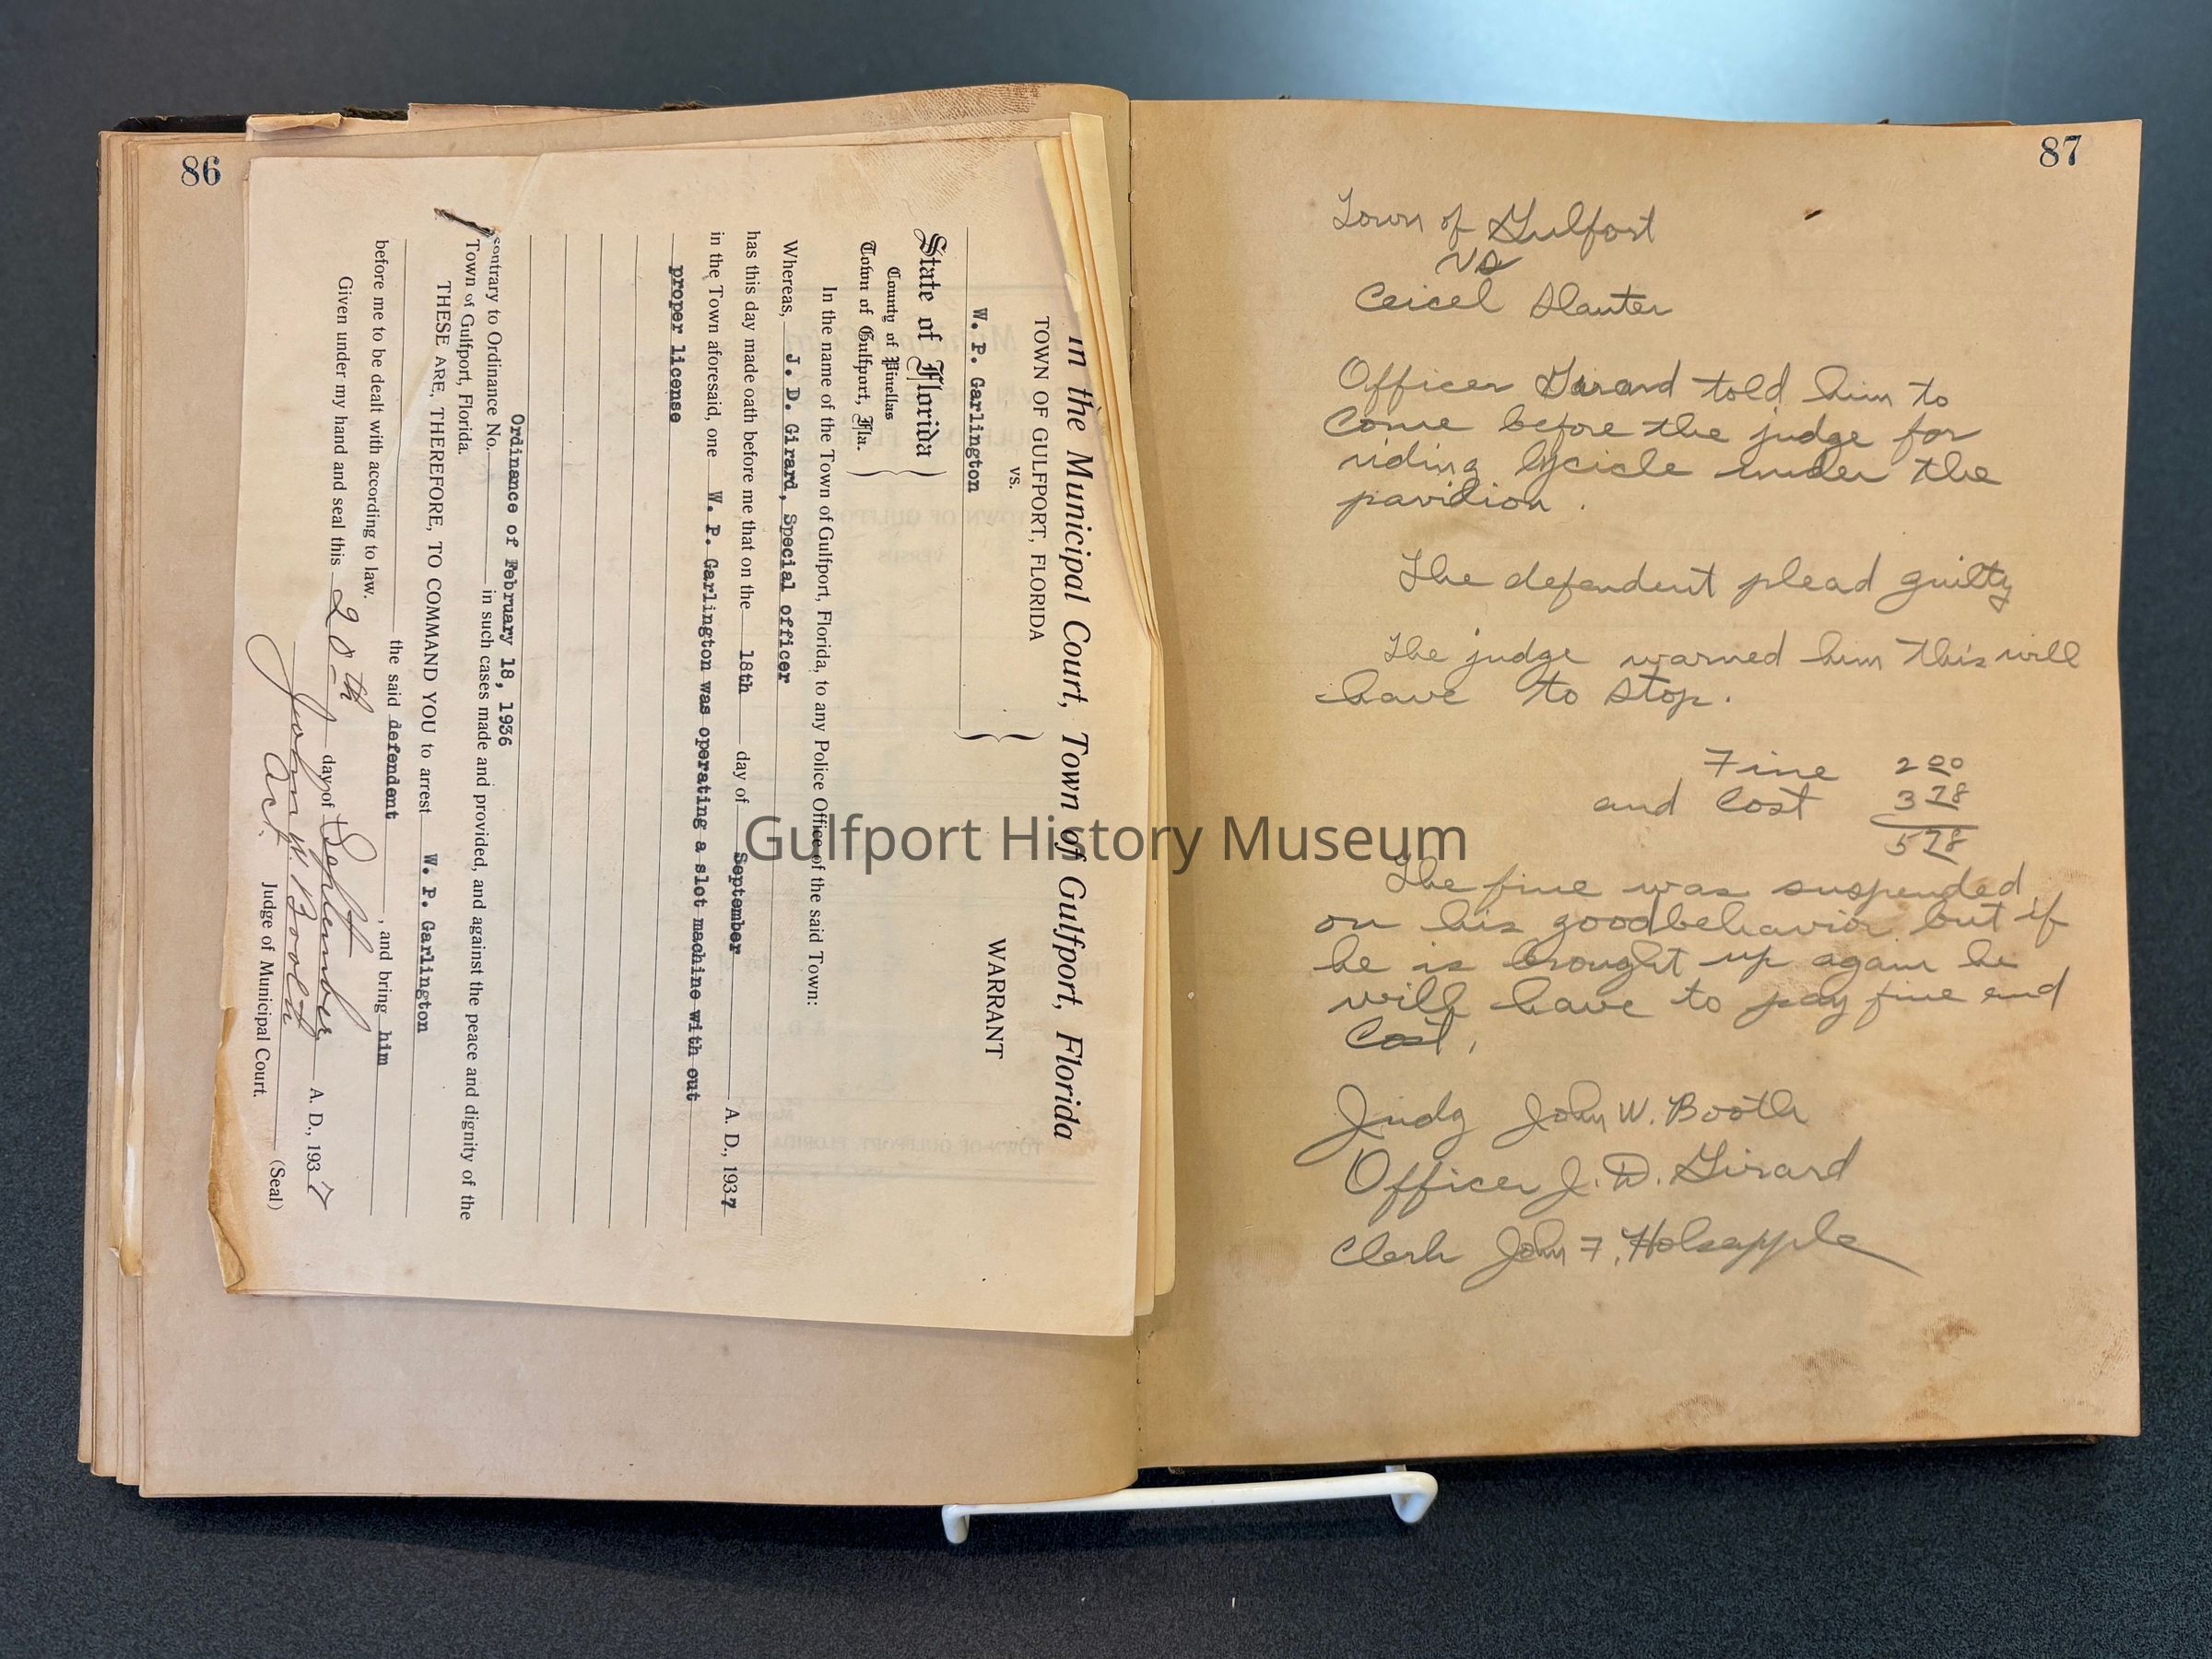 86
In the Municipal Court, Town of Gulfport, Florida
TOWN OF GULFPORT, FLORIDA
vs.
WARRANT
W. P. Garlington
State of Florida
County of Pinellas
Town of Gulfport, Fla.
In the name of the Town of Gulfport, Florida, to any Police Office of the said Town:
Whereas, J. D. Girard, Special officer
has this day made oath before me that on the 18th day of September A. D., 1937
in the Town aforesaid, one W. P. Garlington was operating a slot machine with out
proper license
Ordinance of February 18, 1936
contrary to Ordinance No. in such cases made and provided, and against the peace and dignity of the
Town of Gulfport, Florida.
THESE ARE, THEREFORE, TO COMMAND YOU to arrest W. P. Garlington
the said defendent, and bring him
before me to be dealt with according to law.
Given under my hand and seal this 20th day of September A. D., 1937
John W. Booth (Seal)
Act. Judge of Municipal Court.
87
Town of Gulfort
vs
Ceicel Slauter
Officer Girard told him to
come before the judge for
riding bycicle under the
pavilion.
The defendent plead guilty
The judge warned him this will
have to stop.
Fine 2 00
and Cost 3 78
5 78
The fine was suspended
on his good behavior but if
he is brought up again he
will have to pay fine and
Cost.
Judg John W. Booth
Officer J. D. Girard
Clerk John F. Holsapple
Gulfport History Museum